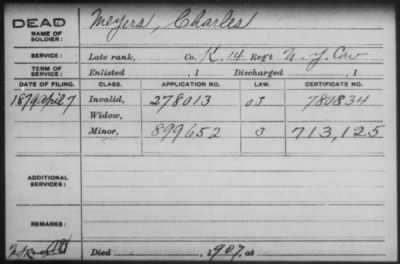 DEAD
NAME OF SOLDIER: Meyers, Charles
SERVICE: Late rank, Co. K. 14 Reg't N. Y. Cav
TERM OF SERVICE: Enlisted , 1 Discharged , 1
DATE OF FILING. CLASS. APPLICATION NO. LAW. CERTIFICATE NO.
1879 April 7 Invalid, 278013 780834
Widow,
Minor, 899652 J 713,125
ADDITIONAL SERVICES:
REMARKS:
Died , 1907, at